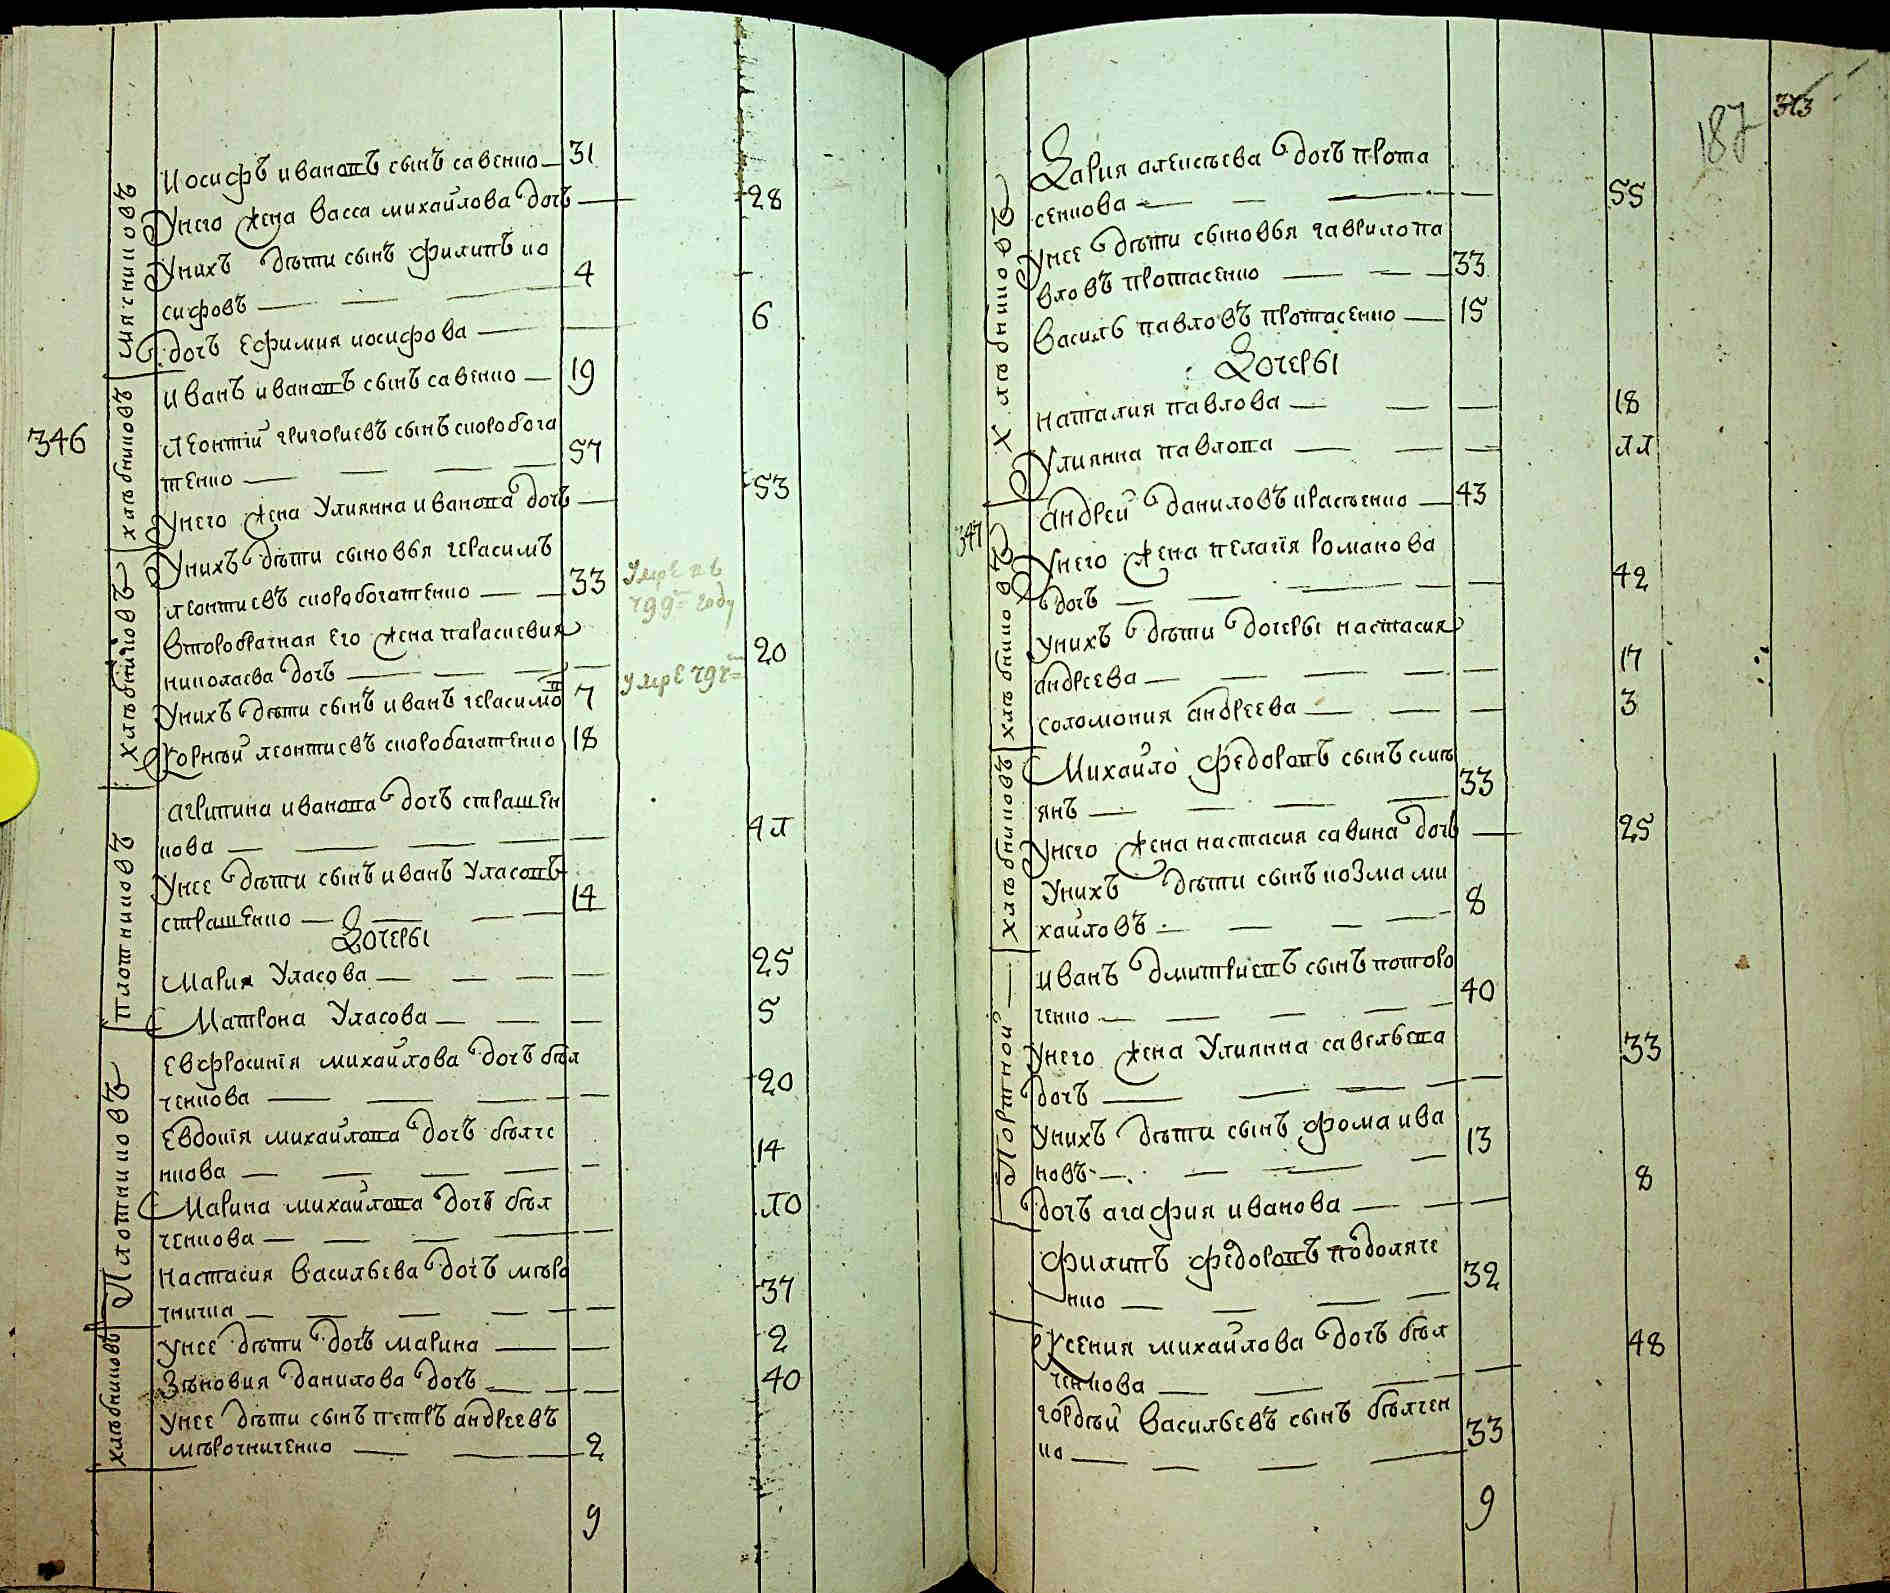 Иосифъ ивановъ сынъ савенко 31
Унего жена васса михайлова дочь 28
Унихъ дѣти сынъ филипъ ио
сифовъ 4
дочь Ефимия иосифова 6
мясниковъ
Иванъ ивановъ сынъ савенко 19
346
Леонтій григориевъ сынъ скоробога
тенко 57
Унего жена Улиянна иванова дочь 53
хлѣбниковъ
Унихъ дѣти сыновья герасимъ
леонтиевъ скоробогатенко 33
Умре въ
799 году
второбрачная его жена параскевия
николаева дочь 20
Унихъ дѣти сынъ иванъ герасимовъ 7
Умре 797
Корнѣй леонтиевъ скоробагатенко 18
хлѣбниковъ
агрипина иванова дочь страшен
кова 41
Унее дѣти сынъ иванъ Уласовъ
страшенко 14
Дочеры
Мария Уласова 25
Матрона Уласова 5
плотниковъ
Евфросинія михайлова дочь бѣл
ченкова 20
Евдокія михайлова дочь бѣлче
нкова 14
Марина михайлова дочь бѣл
ченкова 10
настасия васильева дочь мѣро
чничка 37
Плотниковъ
Унее дѣти дочь марина 2
Зѣновия данилова дочь 40
Унее дѣти сынъ петръ андреевъ
мѣрочниченко 2
хлѣбниковъ
9
187
373
Дария алексѣева дочь прота
сенкова 55
Унее дѣти сыновья гаврило па
вловъ протасенко 33
василь павловъ протасенко 15
Дочеры
наталия павлова 18
Улиянна павлова 11
Хлѣбниковъ
347
андрей даниловъ красѣенко 43
Унего жена пелагія романова
дочь 42
Унихъ дѣти дочеры настасия
андреева 17
соломония андреева 3
хлѣбниковъ
Михайло федоровъ сынъ смѣ
янъ 33
Унего жена настасия савина дочь 25
Унихъ дѣти сынъ козма ми
хайловъ 8
хлѣбниковъ
Иванъ дмитриевъ сынъ поторо
ченко 40
Унего жена Улиянна савельева
дочь 33
Унихъ дѣти сынъ фома ива
новъ 13
дочь агафия иванова 8
Портной
филипъ федоровъ подоляче
нко 32
Ксения михайлова дочь бѣл
ченкова 48
гордѣй васильевъ сынъ бѣлчен
ко 33
9